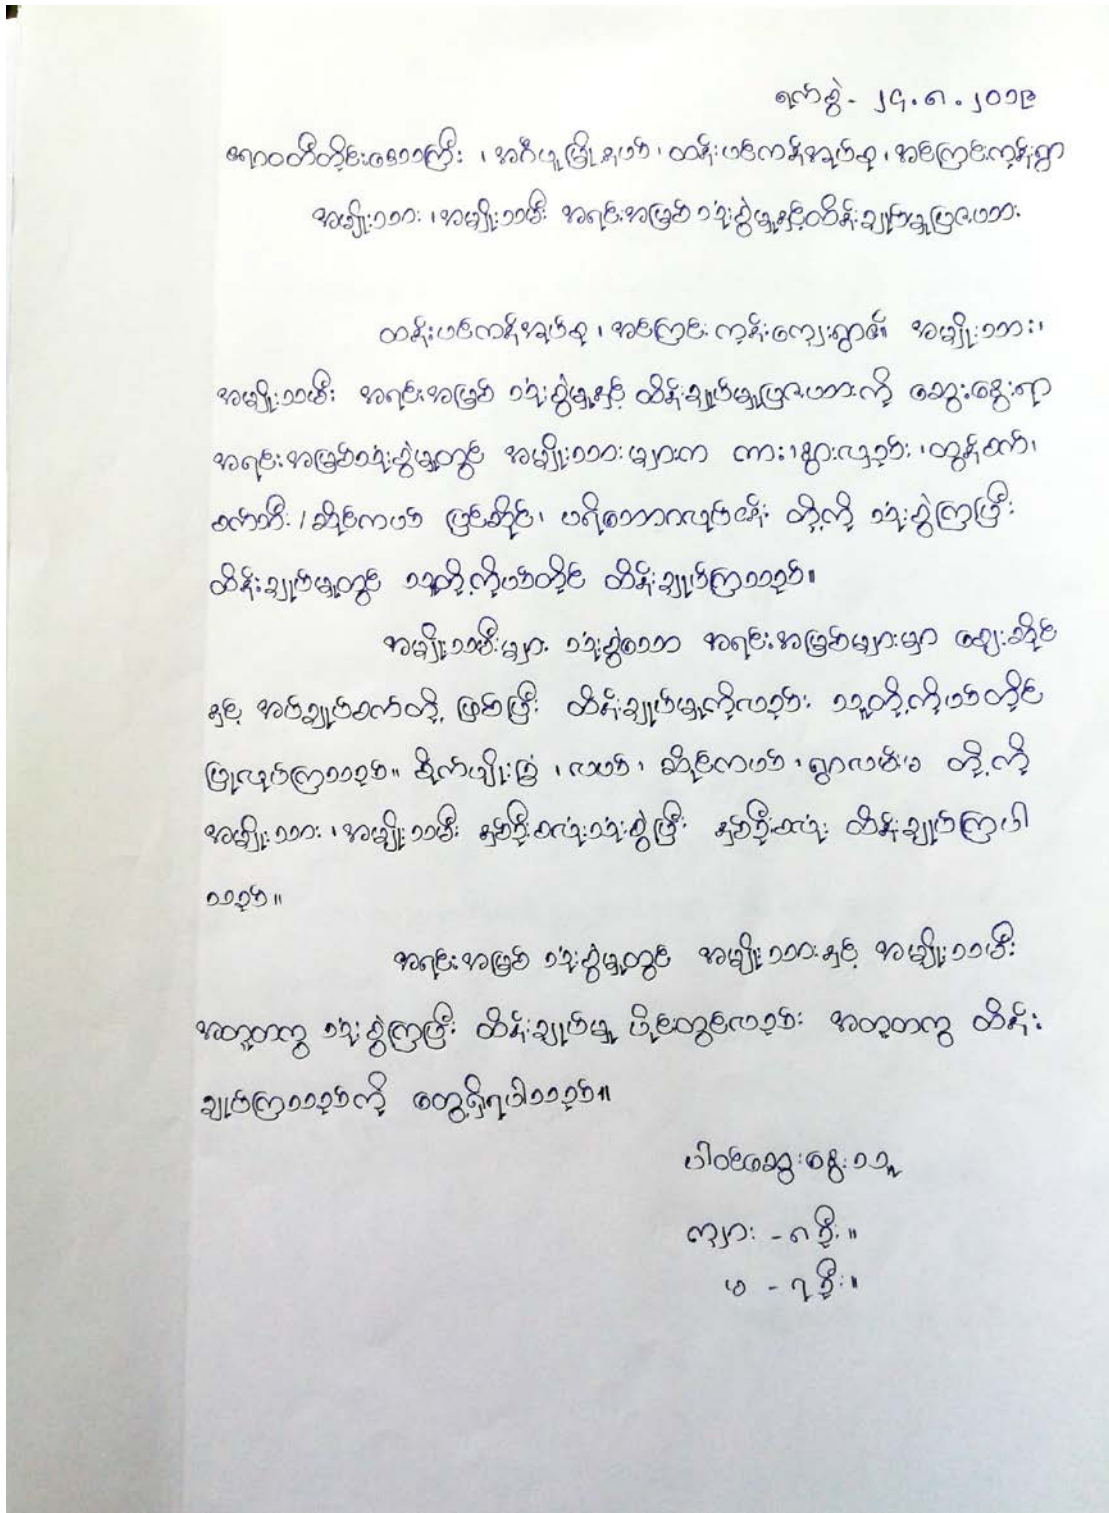 ရက်စွဲ - ၂၄.၈.၂၀၁၉
ဧရာဝတီတိုင်းဒေသကြီး ၊ အင်္ဂပူမြို့နယ် ၊ ထန်းပင်ကုန်းအုပ်စု ၊ အကြောင်းကုန်းရွာ
အမျိုးသား ၊ အမျိုးသမီး အရင်းအမြစ် သုံးစွဲမှုနှင့်ထိန်းချုပ်မှုပြဇယား
အုပ်စု ၊ အမျိုးသား ၊
အမျိုးသမီး အရင်းအမြစ် သုံးစွဲမှုနှင့် ထိန်းချုပ်မှုပြဇယားကို ဆွေးနွေးရာ
အရင်းအမြစ်သုံးစွဲမှုတွင် အမျိုးသားများက ကား ၊ နွားလှည်း ၊ ထွန်စက် ၊
စက်ဘီး ၊ ဆိုင်ကယ် ပြင်ဆိုင် ၊ ပရိဘောဂလုပ်ငန်း တို့ကို သုံးစွဲကြပြီး
ထိန်းချုပ်မှုတွင် သူတို့ကိုယ်တိုင် ထိန်းချုပ်ကြသည်။
အမျိုးသမီးများ သုံးစွဲသော အရင်းအမြစ်များမှာ ဈေးဆိုင်
နှင့် အပ်ချုပ်စက်တို့ ဖြစ်ပြီး ထိန်းချုပ်မှုကိုလည်း သူတို့ကိုယ်တိုင်
ပြုလုပ်ကြသည်။ စိုက်ပျိုးခြံ ၊ လယ် ၊ ဆိုင်ကယ် ၊ ရွာလမ်းမ တို့ကို
အမျိုးသား ၊ အမျိုးသမီး နှစ်ဦးစလုံးသုံးစွဲပြီး နှစ်ဦးစလုံး ထိန်းချုပ်ကြပါ
သည်။
အရင်းအမြစ် သုံးစွဲမှုတွင် အမျိုးသားနှင့် အမျိုးသမီး
အတူတကွ သုံးစွဲကြပြီး ထိန်းချုပ်မှု ပိုင်းတွင်လည်း အတူတကွ ထိန်း
ချုပ်ကြသည်ကို တွေ့ရှိရပါသည်။
ပါဝင်ဆွေးနွေးသူ
ကျား - ၈ ဦး။
မ - ၇ ဦး။